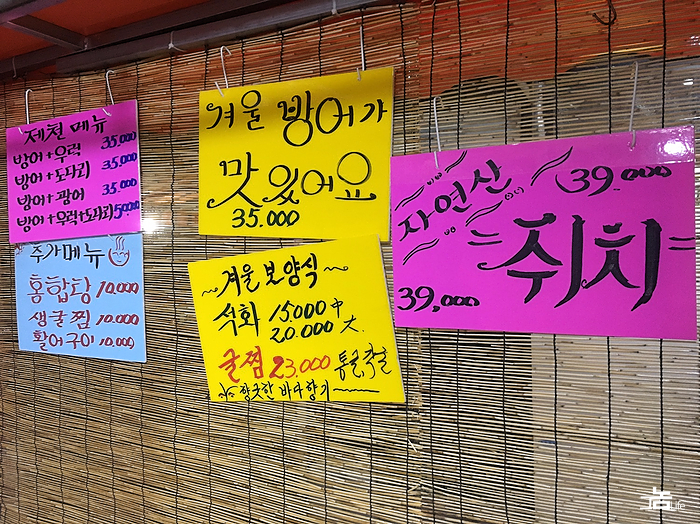 제천 메뉴
방어+우럭 35,000
방어+도다리 35,000
방어+광어 35,000
방어+우럭+도다리
추가메뉴
홍합탕 10,000
생굴찜 10,000
활어구이 10,000
겨울 방어가
맛있어요
35.000
~겨울 보양식~
석화 15,000 中
20.000 大.
굴찜 23,000 통굴,
향긋한 바다향기
자연산 39.000
쥐치
39,000
Life